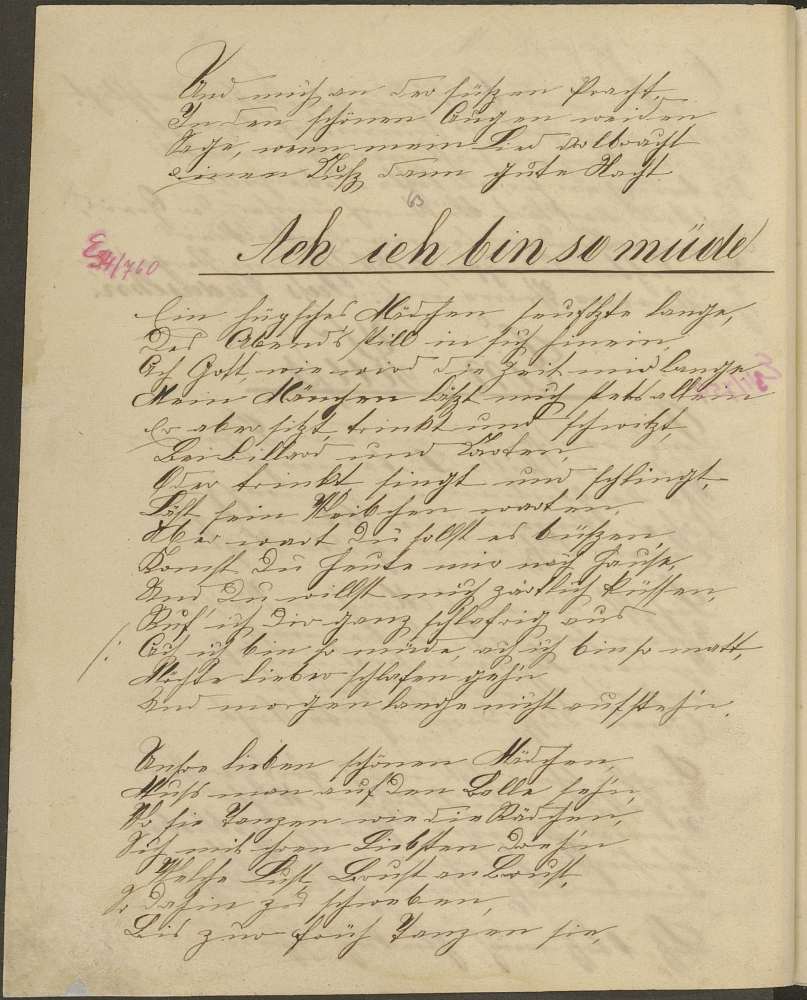 Und mich an der süßen Pracht,
In den schönen Augen weiden
Sage, wenn mein Lied vollbracht
Einen Kuß dann gute Nacht.
63
Ach ich bin so müde
54/760
Ein hüpsches Mädchen seufzte lange,
Des Abends still in sich hinein,
Ach Gott wie wird die Zeit mir lange
Mein Mänchen läßt mich stets allein
Er aber sitzt, trinkt und schwitzt,
Bei Billard und Karten,
Oder trinkt singt und schlingt,
Läßt sein Weibchen warten,
Aber wart Du sollst es büßen,
Komst Du heute mir nach Hause,
Und Du willst mich zärtlich küssen,
Ruf' ich Dir ganz schlafrig aus
/: Ach ich bin so müde, ach ich bin so matt,
Möchte lieber schlafen gehn
Und morgen lange nicht aufstehn.
Unsre lieben schönen Mädchen,
Muss man auf den Balle sehn,
Wo sie Tanzen wie die Rädchen,
Sich mit ihren Liebsten drehn
Welche Lust, Brust an Brust,
So dahin zu schweben,
Bis zur früh Tanzen sie,